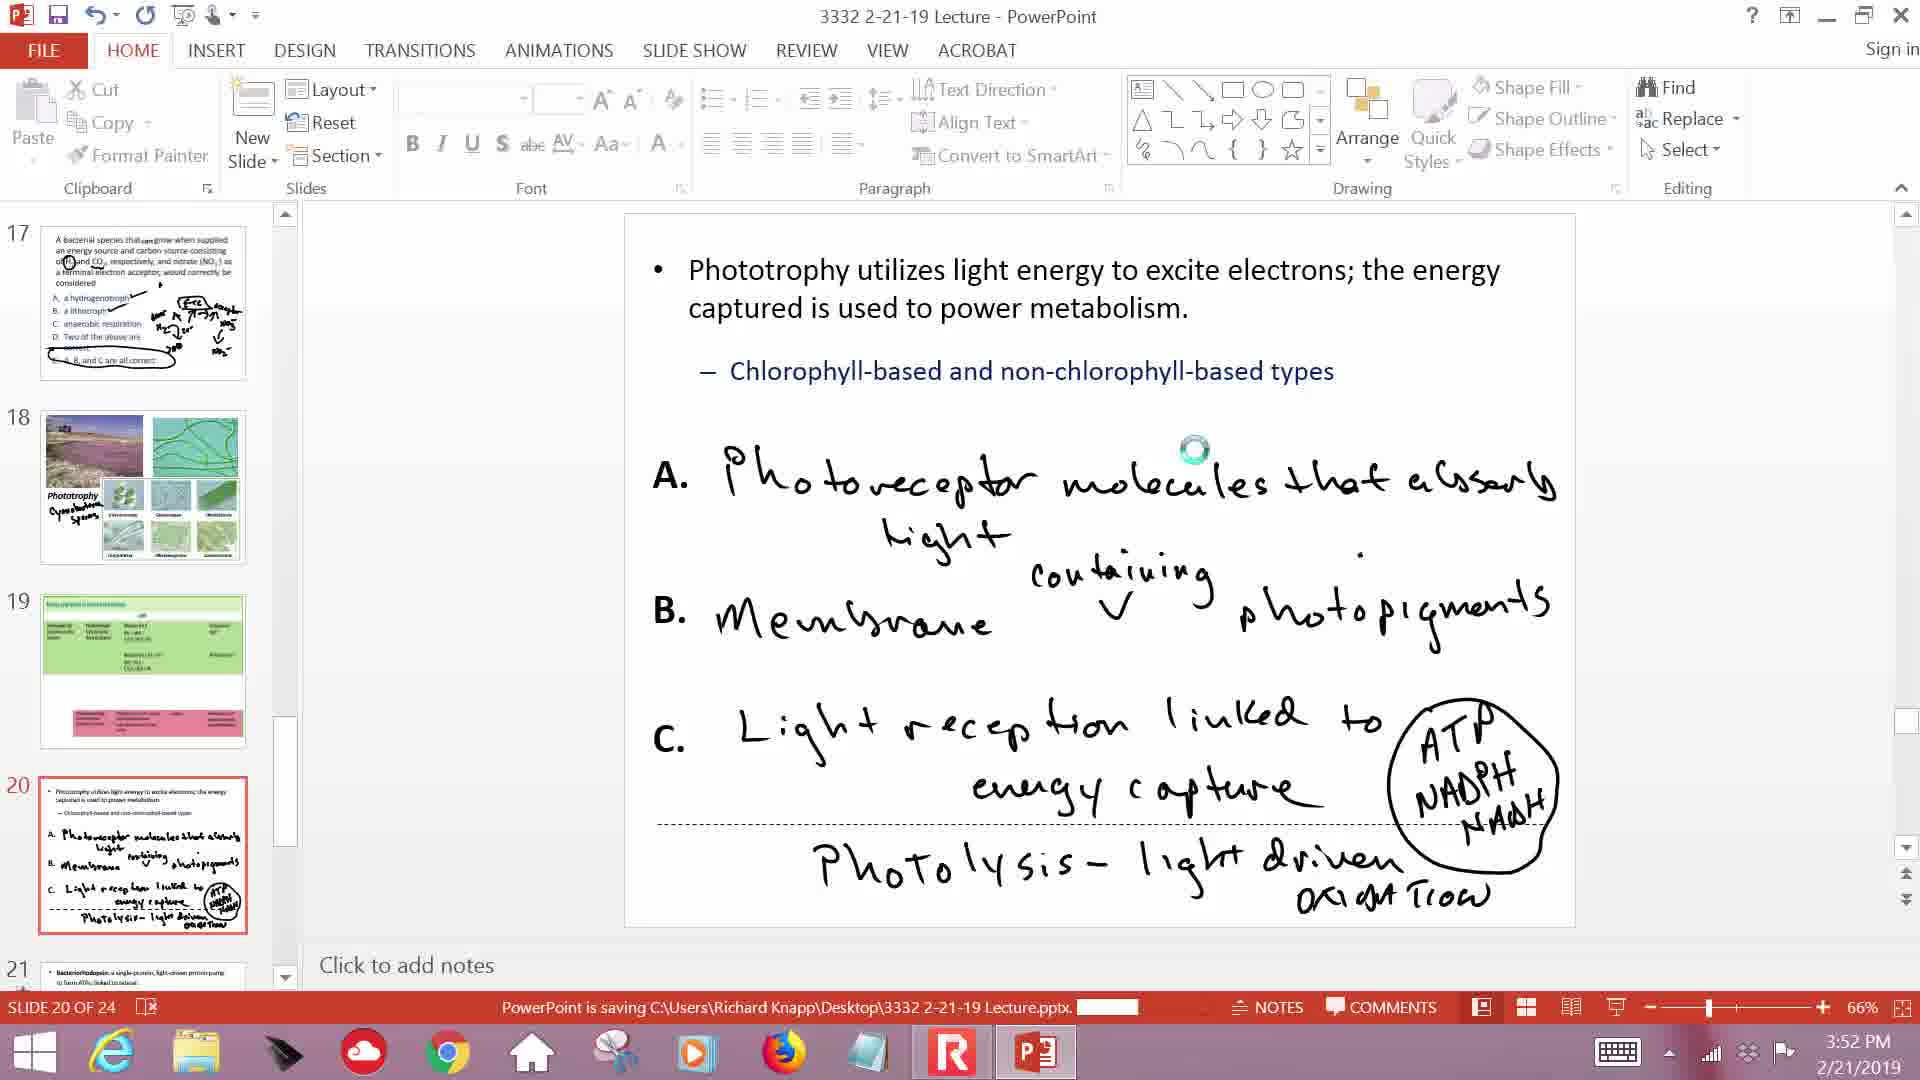 3332 2-21-19 Lecture - PowerPoint
FILE HOME INSERT DESIGN TRANSITIONS ANIMATIONS SLIDE SHOW REVIEW VIEW ACROBAT Sign in
Paste
Cut
Copy
Format Painter
Clipboard
New Slide
Layout
Reset
Section
Slides
Font
Text Direction
Align Text
Convert to SmartArt
Paragraph
Arrange
Quick Styles
Shape Fill
Shape Outline
Shape Effects
Drawing
Find
Replace
Select
Editing
17
A bacterial species that can grow when supplied
an energy source and carbon source consisting
of H2 and CO2, respectively, and nitrate (NO3-) as
a terminal electron acceptor, would correctly be
considered
A. a hydrogenotroph
B. a lithotroph
C. anaerobic respiration
D. Two of the above are
correct
E. A, B, and C are all correct
18
Phototrophy
Cyanobacteria
Species
19
20
• Phototrophy utilizes light energy to excite electrons; the energy
captured is used to power metabolism.
– Chlorophyll-based and non-chlorophyll-based types
A. Photoreceptor molecules that absorb
light
B. Membrane containing photopigments
C. Light reception linked to
energy capture
ATP
NADPH
NADH
Photolysis - light driven
oxidation
21
Bacteriorhodopsin: a single-protein, light-driven proton pump
to form ATP; linked to retinal.
• Phototrophy utilizes light energy to excite electrons; the energy
captured is used to power metabolism.
– Chlorophyll-based and non-chlorophyll-based types
A. Photoreceptor molecules that absorb
light
containing
B. Membrane photopigments
C. Light reception linked to
energy capture
ATP
NADPH
NADH
Photolysis - light driven
oxidation
Click to add notes
SLIDE 20 OF 24 PowerPoint is saving C:\Users\Richard Knapp\Desktop\3332 2-21-19 Lecture.pptx. NOTES COMMENTS 66%
3:52 PM
2/21/2019